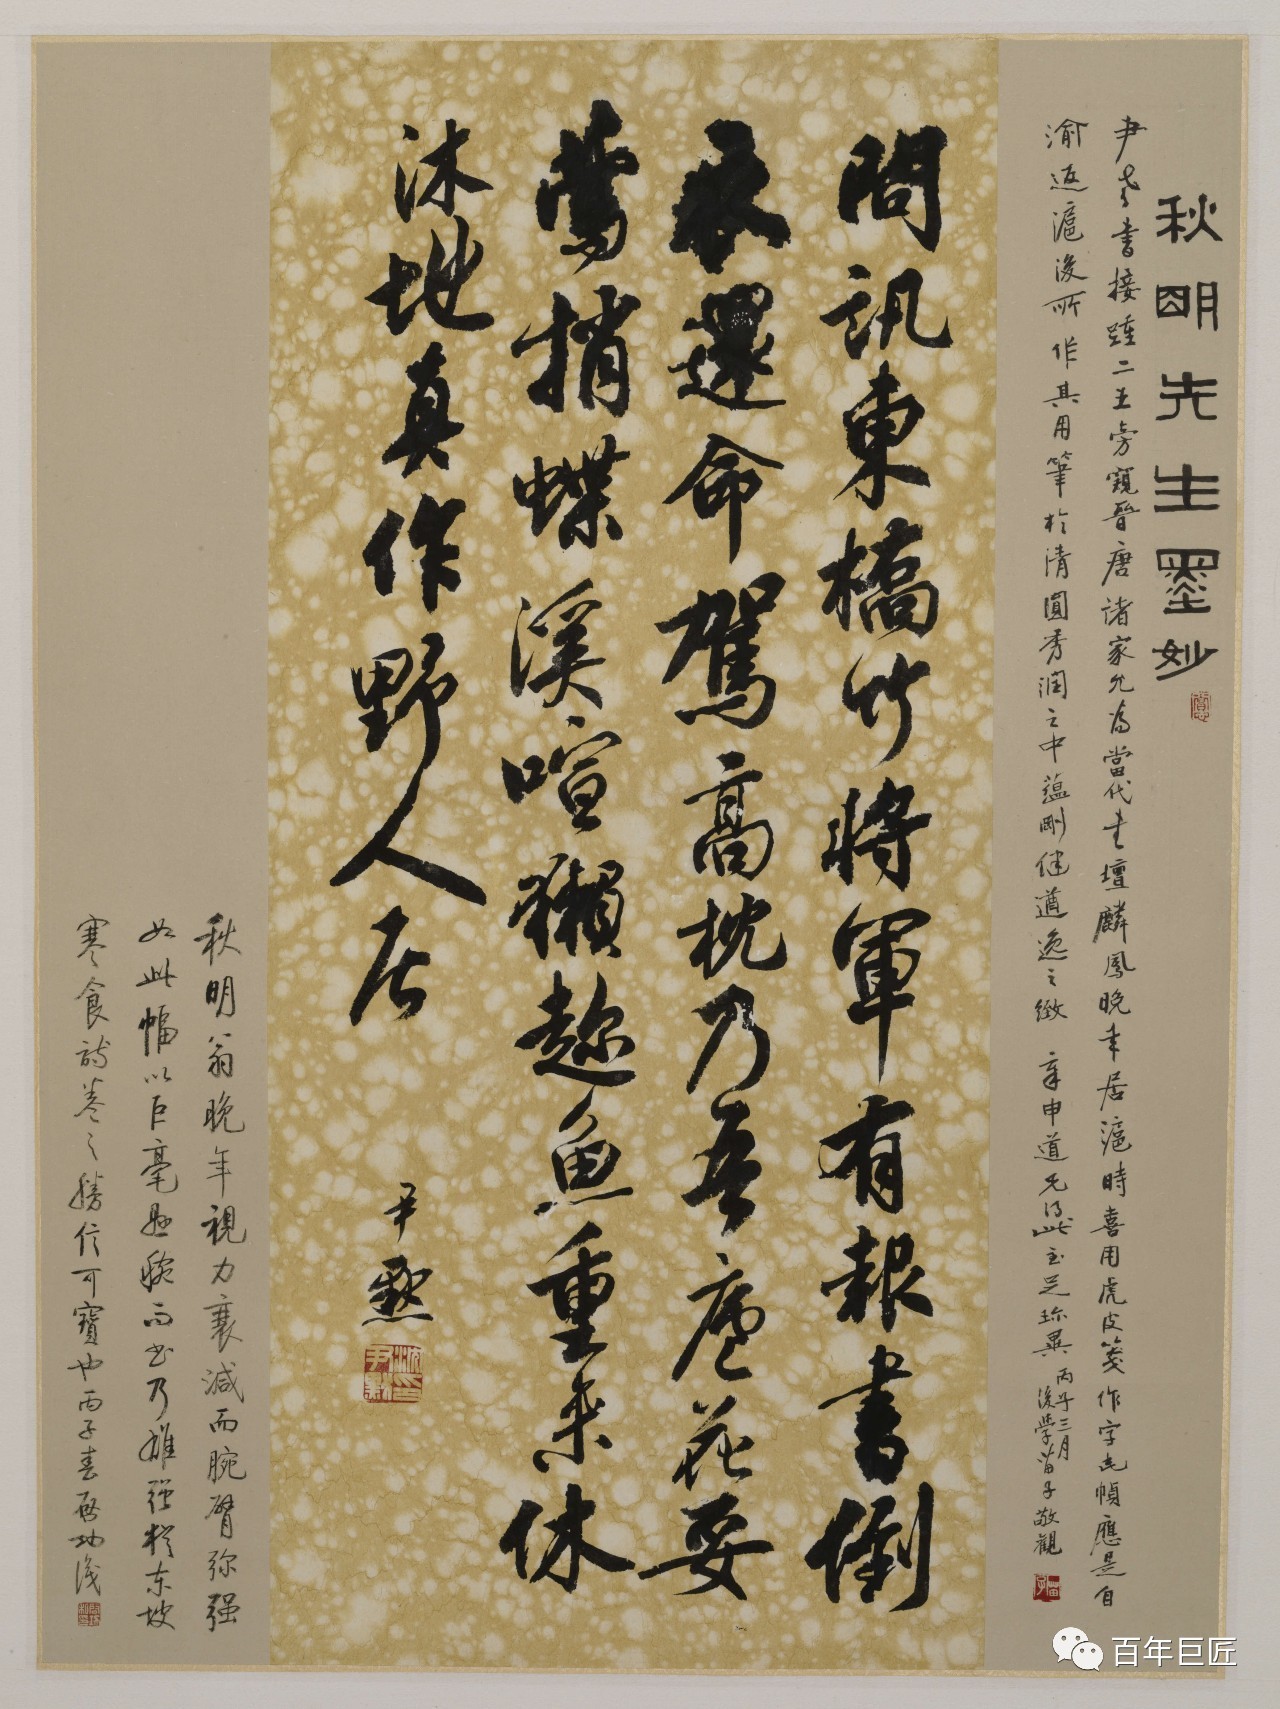 秋明先生墨妙
尹老書接踵二王旁窺晉唐諸家允為當代書壇麟鳳晚年居滬時喜用虎皮箋作字此幀應是自
渝返滬後所作其用筆於清圓秀潤之中蘊剛健遒逸之緻 辛申道兄得此至足珍異 丙子三月
後學苗子敬觀
問訊東橋竹將軍有報書倒
衣還命駕高枕乃吾廬花妥
鶯捎蝶溪喧獺趁魚重來休
沐地真作野人居
尹默
沈尹默印
秋明翁晚年視力衰減而腕臂弥强
如此幅以巨毫懸腕而書乃雄强於東坡
寒食詩卷之勝信可寶也丙子春啟功識
百年巨匠